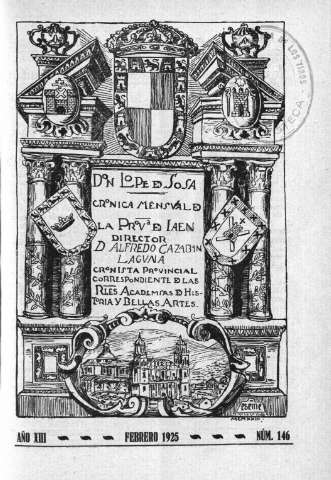 DE LOS TIROS
TECA
DON LOPE D SOSA
CRONICA MENSVAL D
LA PROVª D IAEN
DIRECTOR
D ALFREDO CAZABAN
LAGUNA
CRONISTA PROVINCIAL
CORRESPONDIENTE D LAS
RLES ACADEMIAS D HIS-
TORIA Y BELLAS ARTES.
MCMXXIII
AÑO XIII FEBRERO 1925 NÚM. 146